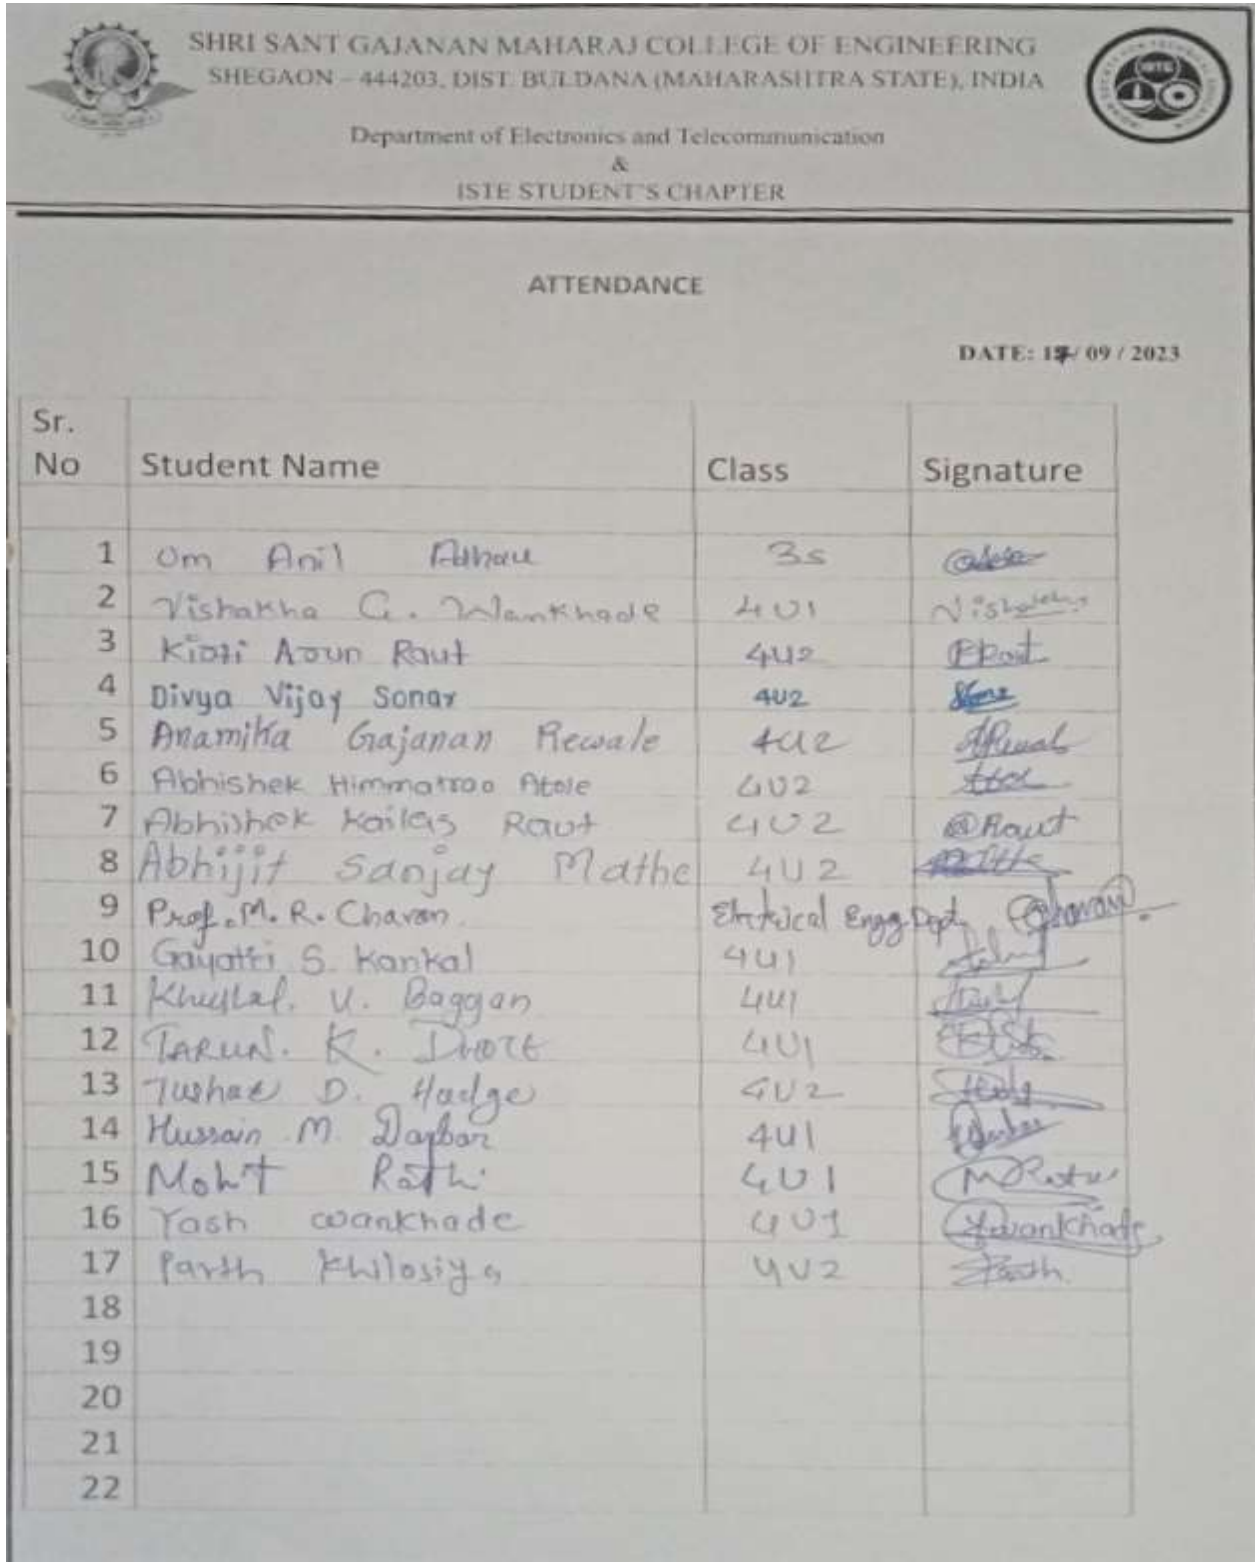 SHRI SANT GAJANAN MAHARAJ COLLEGE OF ENGINEERING
SHEGAON – 444203, DIST. BULDANA (MAHARASHTRA STATE), INDIA
ISTE
Department of Electronics and Telecommunication
&
ISTE STUDENT'S CHAPTER
ATTENDANCE
DATE: 17/ 09 / 2023
Sr. No Student Name Class Signature
1 Om Anil Adhau 3s
2 Vishakha G. Wankhade 4U1
3 Kirti Arun Raut 4U2 Raut
4 Divya Vijay Sonar 4U2
5 Anamika Gajanan Rewale 4U2 ARewale
6 Abhishek Himmatrao Atole 4U2
7 Abhishek Kailas Raut 4U2 @Raut
8 Abhijit Sanjay Mathe 4U2
9 Prof. M. R. Chavan. Electrical Engg. Dept. Chavan
10 Gayatri S. Kankal 4U1
11 Khushal. U. Baggan 4U1
12 TARUN. K. DHOTE 4U1
13 Tushar D. Hadge 4U2
14 Hussain M. Darbar 4U1
15 Mohit Rathi 4U1 MRathi
16 Yash wankhade 4U1 Ywankhade
17 Parth Khilosiya 4U2 Parth
18
19
20
21
22